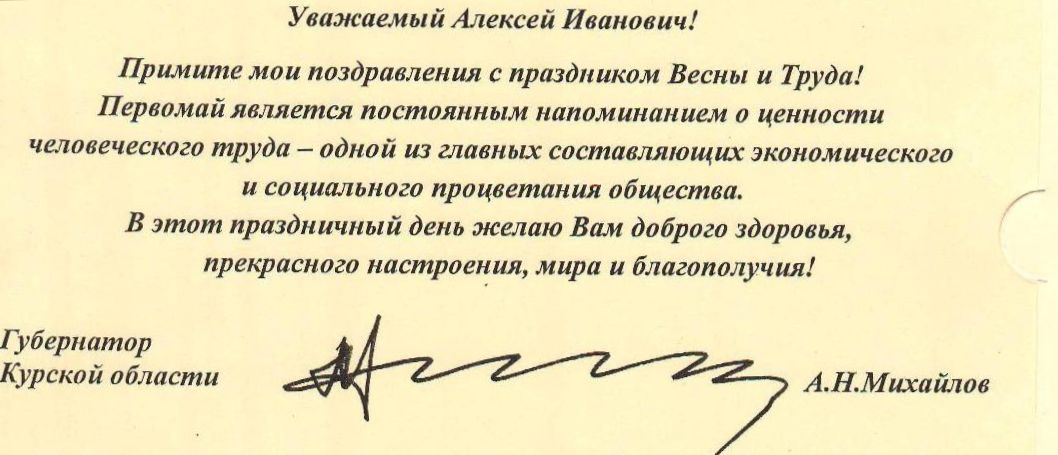 Уважаемый Алексей Иванович!
Примите мои поздравления с праздником Весны и Труда!
Первомай является постоянным напоминанием о ценности
человеческого труда – одной из главных составляющих экономического
и социального процветания общества.
В этот праздничный день желаю Вам доброго здоровья,
прекрасного настроения, мира и благополучия!
Губернатор
Курской области
А.Н.Михайлов